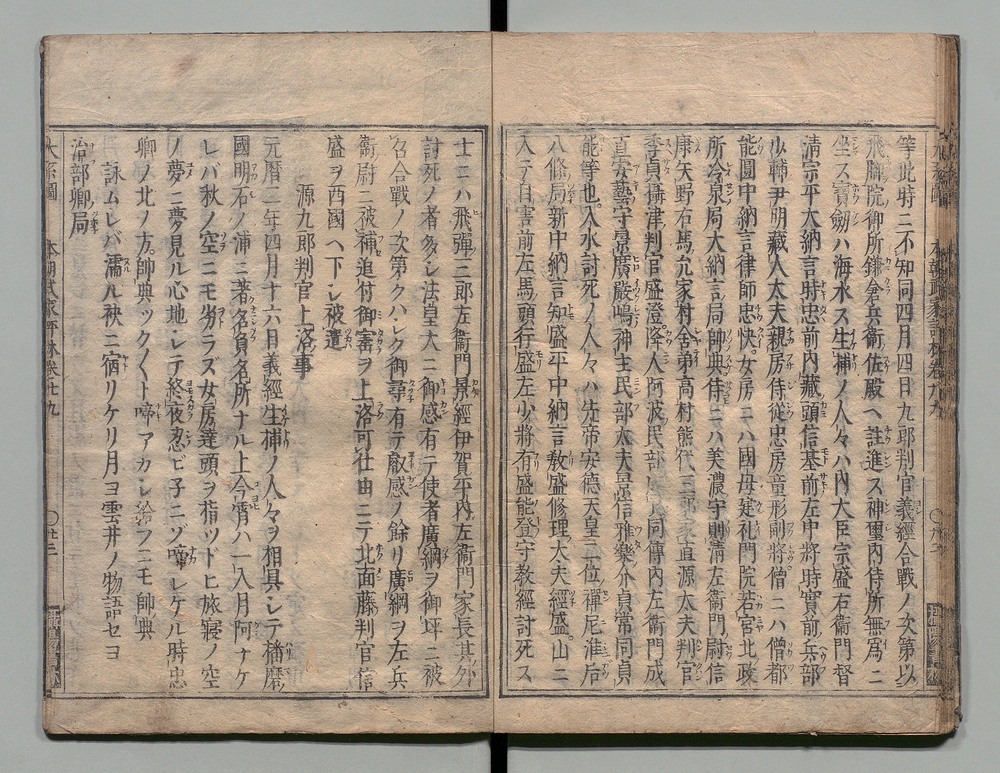 等此時ニ不知同四月四日九郎判官義經合戰ノ次第以
飛脚院御所鎌倉兵衛佐殿ヘ註進ス神璽内侍所無為ニ
坐ス寳劔ハ海水ス生捕ノ人々ハ内大臣宗盛右衞門督
清宗平大納言時忠前内藏頭信基前左中將時實前兵部
少輔尹明藏人大夫親房侍從忠房童形副將僧ニハ僧都
能圓中納言律師忠快女房ニハ國母建礼門院若宮北政
所冷泉局大納言局帥典侍ニハ美濃守則清左衞門尉信
康矢野右馬允家村舎弟高村熊代三郎家直源太夫判官
季貞攝津判官盛澄降人阿波民部同傳内左衞門成
直安藝守景廣嚴嶋神主民部大夫景信雅樂介貞常同貞
能等也入水討死ノ人々ハ先帝安德天皇二位禪尼准后
八條局新中納言知盛平中納言敎盛修理大夫經盛山ニ
入テ自害前左馬頭行盛左少將有盛能登守教經討死ス
士ニハ飛彈三郎左衞門景經伊賀平内左衞門家長其外
討死ノ者多シ法皇大ニ御感有テ使者廣綱ヲ御坪ニ被
召合戰ノ次第クハシク御尋有テ叡感ノ餘リ廣綱ヲ左兵
衞尉ニ被補追付御書ヲ上洛可仕由ニテ北面藤判官信
盛ヲ西國ヘ下シ被遣
源九郎判官上洛事
元曆二年四月十六日義經生捕ノ人々ヲ相具シテ播磨
國明石ノ浦ニ著名負名所ナル上今宵ハ一入月阿ナケ
レバ秋ノ空ニモ劣ラズ女房達頭ヲ指ツドヒ旅寢ノ空
ノ夢ニ夢見ル心地シテ終夜忍ビ子ニゾ啼レケル時忠
卿ノ北ノ方帥典ツクヅクト啼アカシ給フニモ帥典
詠ムレバ濡ル袂ニ宿リケリ月ヨ雲井ノ物語セヨ
治部卿局
本朝武家評林卷廿九
〇廿三